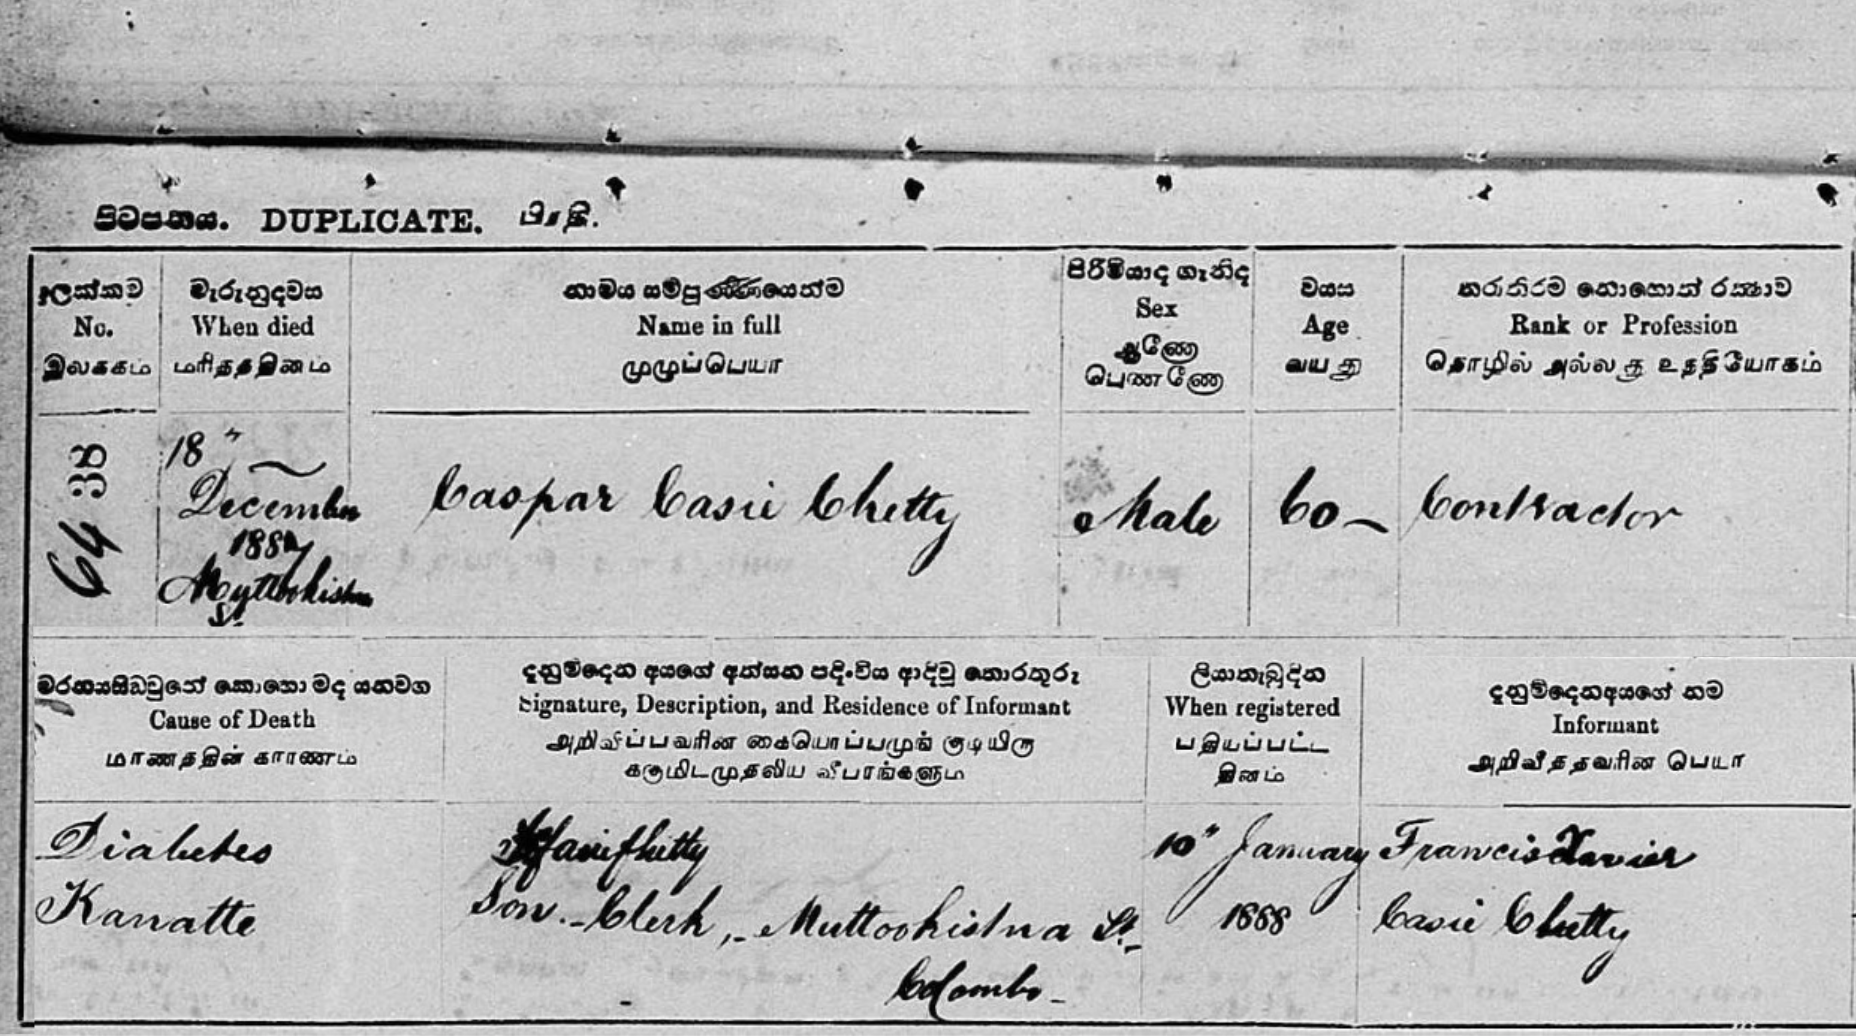 පිටපතය. DUPLICATE. பிரதி.
ලක්කව
No.
இலக்கம்
මැරුනුදවස
When died
மரித்ததினம்
නාමය සම්පූර්ණයෙන්ම
Name in full
முழுப்பெயர்
පිරිමියාද ගැනිද
Sex
ஆணோ
பெண்ணோ
වයස
Age
வயது
තරාතිරම නොහොත් රක්ෂාව
Rank or Profession
தொழில் அல்லது உத்தியோகம்
64 38
18"
December
1887
Muttookistna
St.
Caspar Casie Chetty
Male
60
Contractor
Cause of Death
மரணத்தின் காரணம்
දැනුම්දෙන අයගේ අත්සන පදිංචිය ආදිවූ තොරතුරු
Signature, Description, and Residence of Informant
அறிவிப்பவரின் கையொப்பமுங் குடியிரு
க்குமிடமுதலிய விபரங்களும்
ලියාතැබූදින
When registered
பதியப்பட்ட
தினம்
දැනුම්දෙනඅයගේ නම
Informant
அறிவித்தவரின் பெயர்
Diabetes
Kanatte
Son. - Clerk, - Muttookistna St. -
Colombo -
10" January
1888
Francis Xavier
Casie Chetty